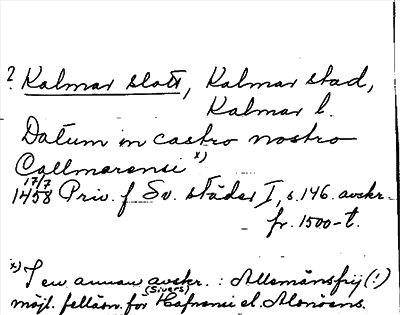 ? Kalmar slott, Kalmar stad,
Kalmar l.
Datum in castro nostro
Callmarensi x)
17/7
1458 Priv. f Sv. städer I, s. 146. avskr.
fr. 1500-t.
x) I en annan avskr. : Allemänsfrij (!)
(Sivers)
möjl. felläsn. för Hafnensi el. Alonöens.